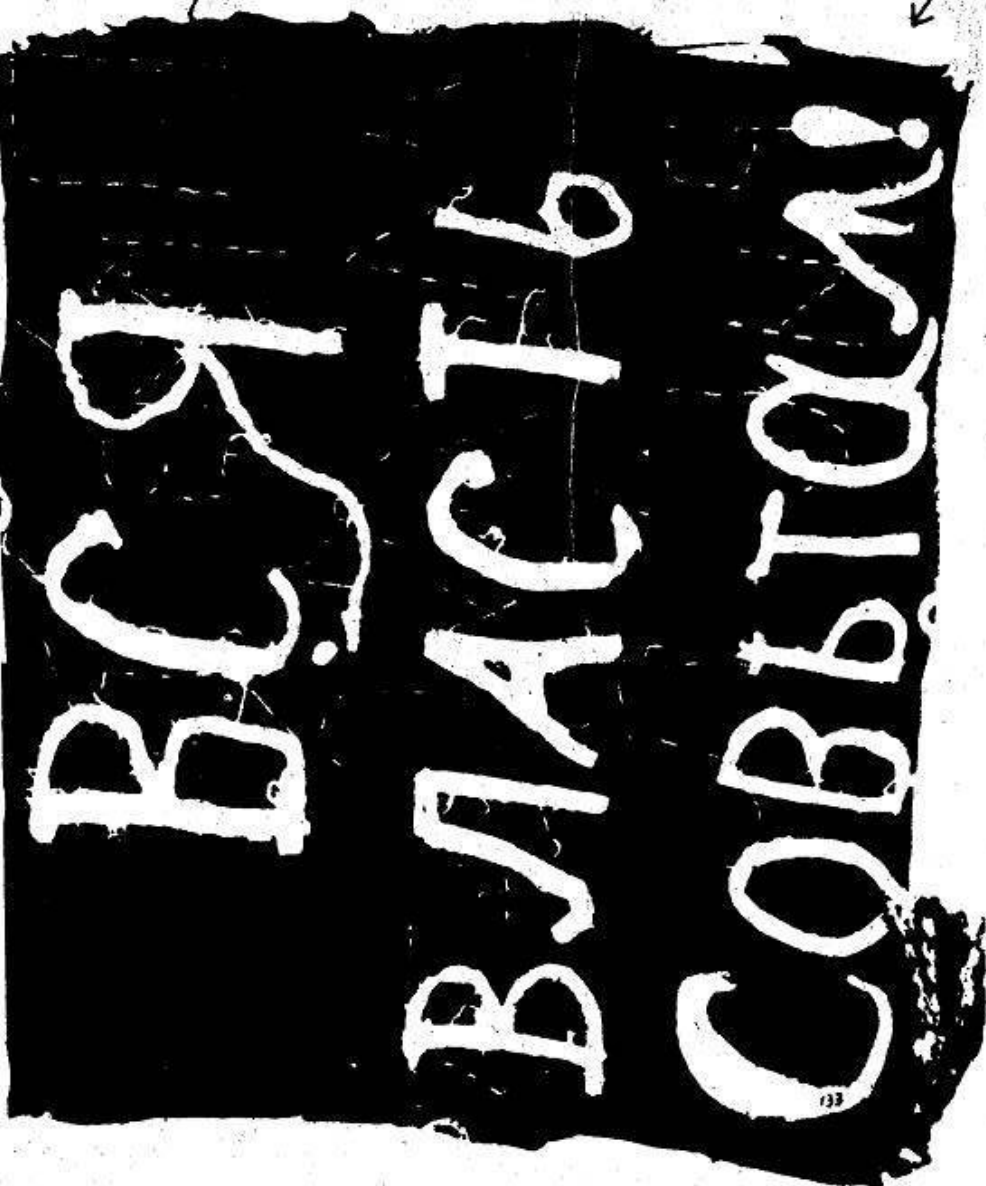 ВСЯ
ВЛАСТЬ
СОВѢТАМ!
133